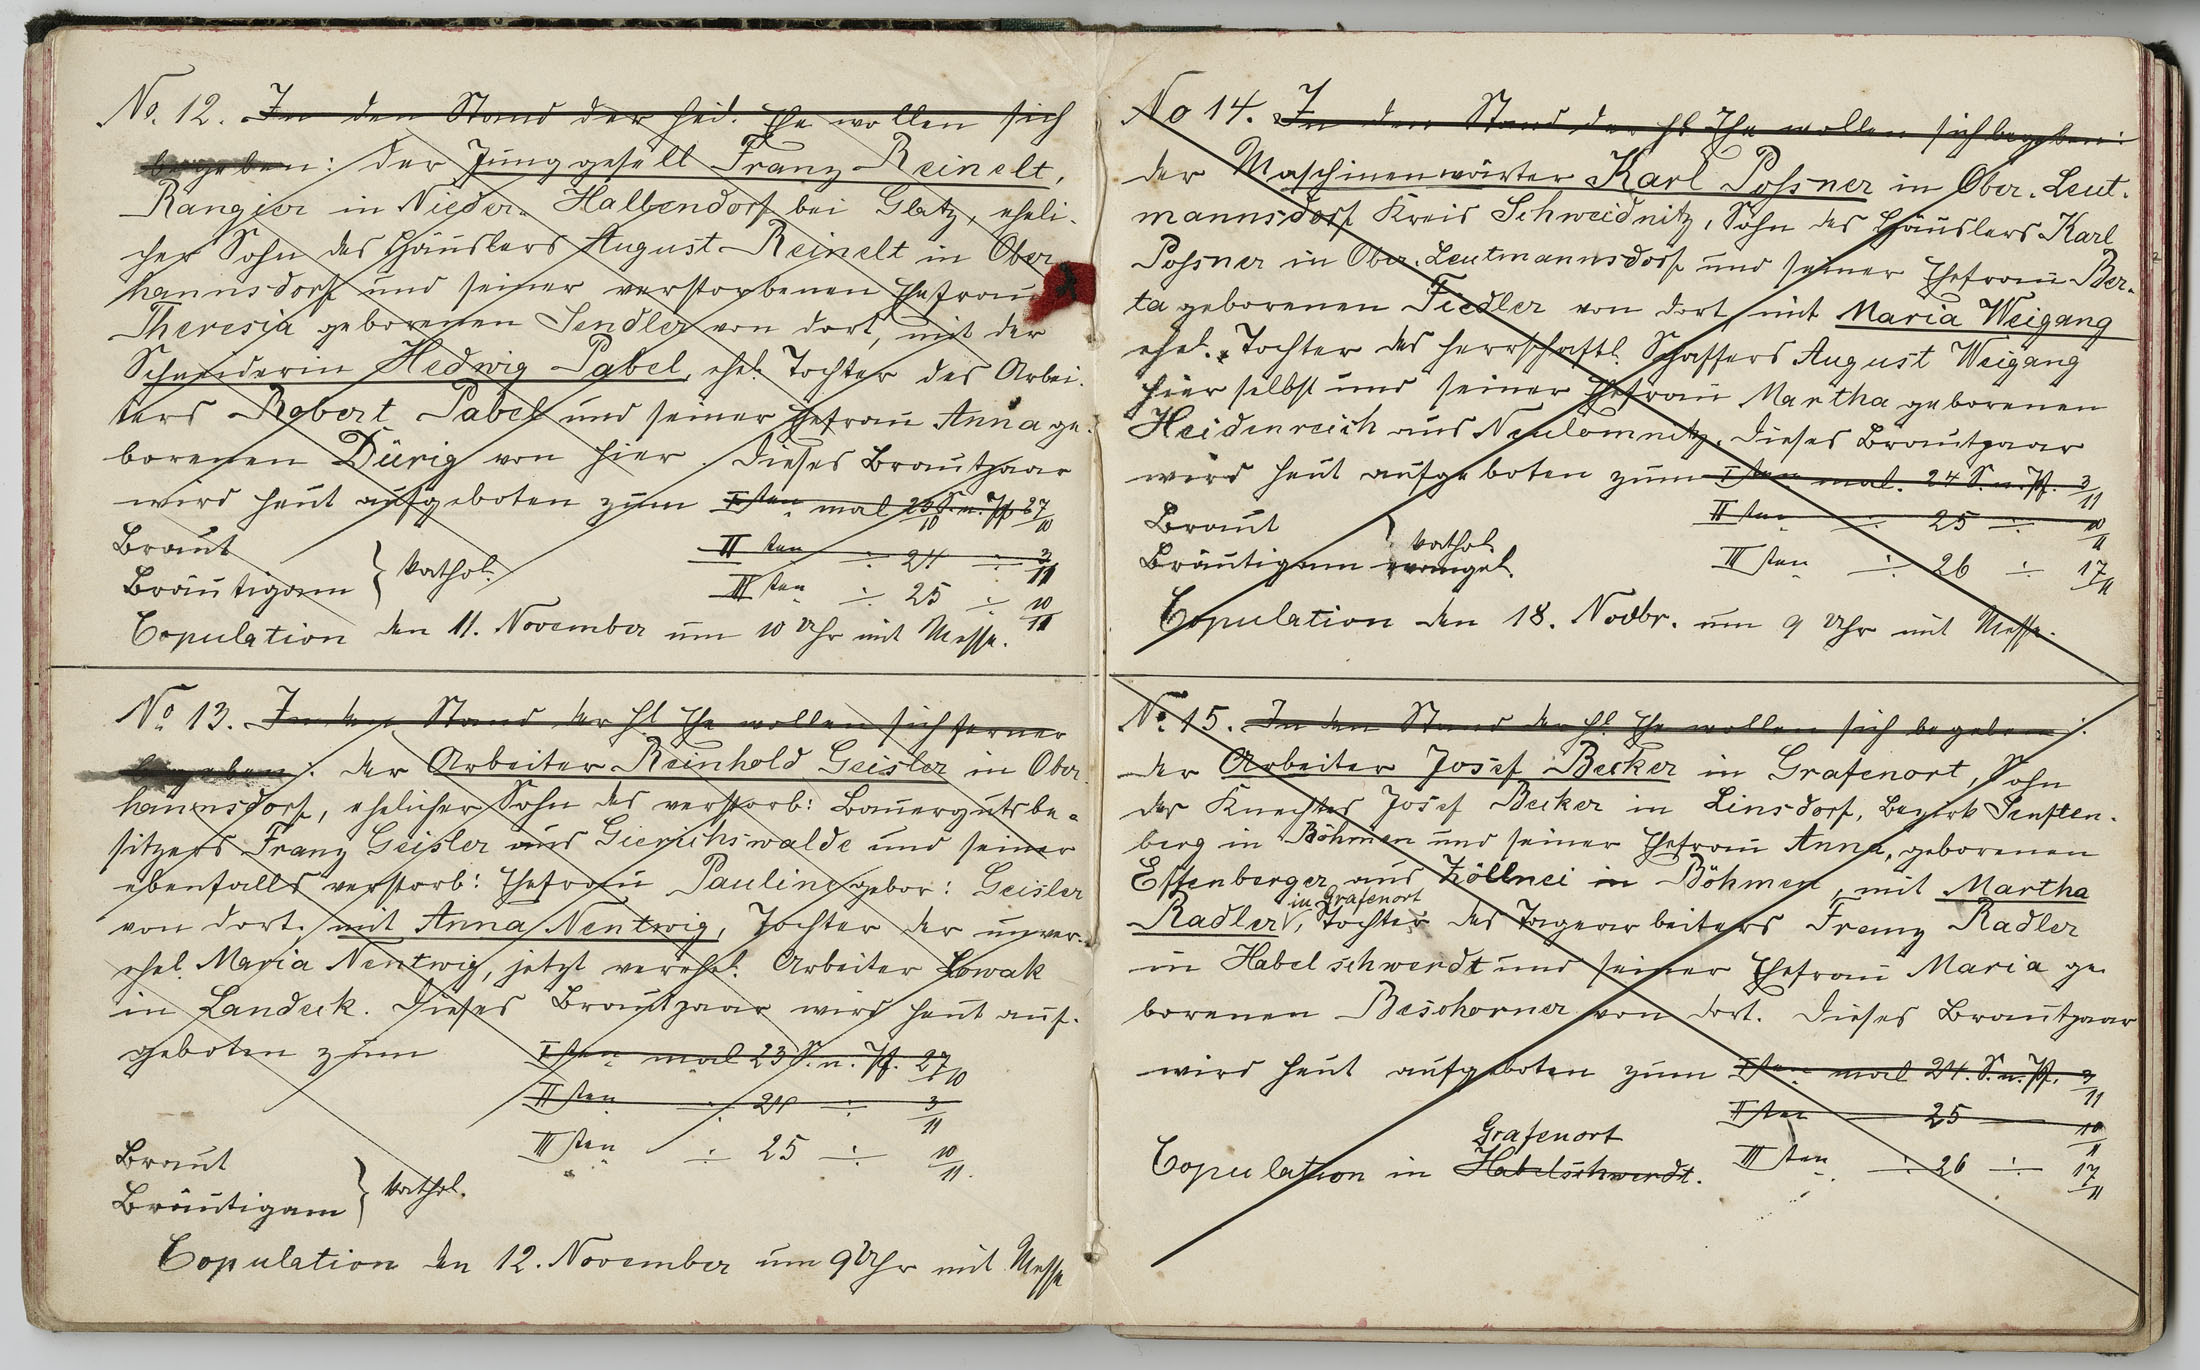 No. 12. In den Stand der heil. Ehe wollen sich
begeben: der Junggesell Franz Reinelt,
Rangier in Nieder-Halbendorf bei Glatz, eheli-
cher Sohn des Häuslers August Reinelt in Ober
hannsdorf und seiner verstorbenen Ehefrau
Theresia geborenen Sendler von dort, mit der
Schneiderin Hedwig Pabel, ehel. Tochter des Arbei-
ters Robert Pabel und seiner Ehefrau Anna ge-
borenen Dürig von hier. Dieses Brautpaar
wird heut aufgeboten zum Isten mal 23 S. n. Pf. 27/10
IIsten ÷ 24 ÷ 3/11
Braut
Bräutigam } kathol.
IIIsten ÷ 25 ÷ 10/11
Copulation den 11. November um 10 Uhr mit Messe.
No 13. In den Stand der hl Ehe wollen sich ferner
begeben: der Arbeiter Reinhold Geisler in Ober
hannsdorf, ehelicher Sohn des verstorb: Bauergutsbe-
sitzers Franz Geisler aus Gierichswalde und seiner
ebenfalls verstorb: Ehefrau Pauline gebor: Geisler
von dort. mit Anna Nentwig, Tochter der unver-
ehel. Maria Nentwig, jetzt verehel. Arbeiter Lowak
in Landeck. Dieses Brautpaar wird heut auf-
geboten zum Isten mal 23 S. n. Pf. 27/10
IIsten ÷ 24 ÷ 3/11
IIIsten ÷ 25 ÷ 10/11.
Braut
Bräutigam } kathol.
Copulation den 12. November um 9 Uhr mit Messe
No 14. In den Stand der hl Ehe wollen sich begeben:
der Maschinenwärter Karl Poßner in Ober-Leut-
mannsdorf Kreis Schweidnitz, Sohn des Häuslers Karl
Poßner in Ober-Leutmannsdorf und seiner Ehefrau Ber-
ta geborenen Fiedler von dort mit Maria Weigang
ehel. Tochter des herrschaftl. Schaffers August Weigang
hierselbst und seiner Ehefrau Martha geborenen
Heidenreich aus Neulomnitz. Dieses Brautpaar
wird heut aufgeboten zum Isten mal. 24 S. n. Pf. 3/11
IIsten ÷ 25 ÷ 10/11
Braut } kathol.
Bräutigam evangel.
IIIsten ÷ 26 ÷ 17/11
Copulation den 18. Novbr. um 9 Uhr mit Messe.
No 15. In den Stand der hl. Ehe wollen sich begeben:
der Arbeiter Josef Becker in Grafenort, Sohn
des Knechtes Josef Becker in Linsdorf, Bezirk Senften-
berg in Böhmen und seiner Ehefrau Anna, geborenen
Effenberger aus Zöllnei in Böhmen, mit Martha
in Grafenort
Radler √, Tochter des Tagearbeiters Franz Radler
in Habelschwerdt und seiner Ehefrau Maria ge-
borenen Beschorner von dort. Dieses Brautpaar
wird heut aufgeboten zum Isten mal 24. S. n. Pf. 3/11
IIsten 25 10/11
Grafenort
Copulation in Habelschwerdt.
IIIsten ÷ 26 ÷ 17/11